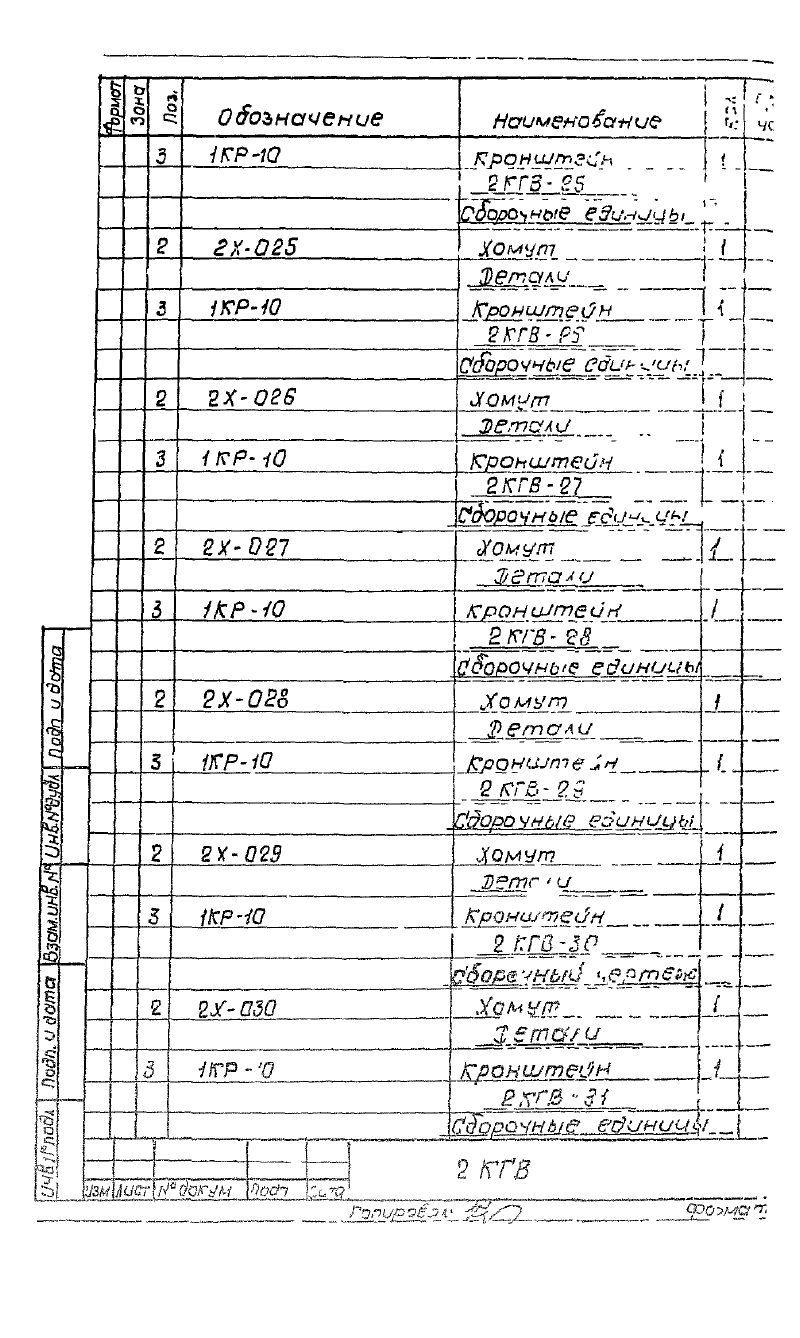 Формат Зона Поз. Обозначение Наименование Кол
3 1КР-10 Кронштейн 1
2КГВ-25
Сборочные единицы
2 2Х-025 Хомут 1
Детали
3 1КР-10 Кронштейн 1
2КГВ-
Сборочные единицы
2 2Х-026 Хомут 1
Детали
3 1КР-10 Кронштейн 1
2КГВ-27
Сборочные единицы
2 2Х-027 Хомут 1
Детали
3 1КР-10 Кронштейн 1
2КГВ-28
Сборочные единицы
2 2Х-028 Хомут 1
Детали
3 1КР-10 Кронштейн 1
2КГВ-29
Сборочные единицы
2 2Х-029 Хомут 1
Детали
3 1КР-10 Кронштейн 1
2КГВ-30
Сборочный чертеж
2 2Х-030 Хомут 1
Детали
3 1КР-10 Кронштейн 1
2КГВ-31
Сборочные единицы
Подп и дата
Инв.№дубл
Взам.инв.№
Подп. и дата
Инв.№подл
2 КГВ
Изм Лист № докум Подп Дата
Копировал Формат